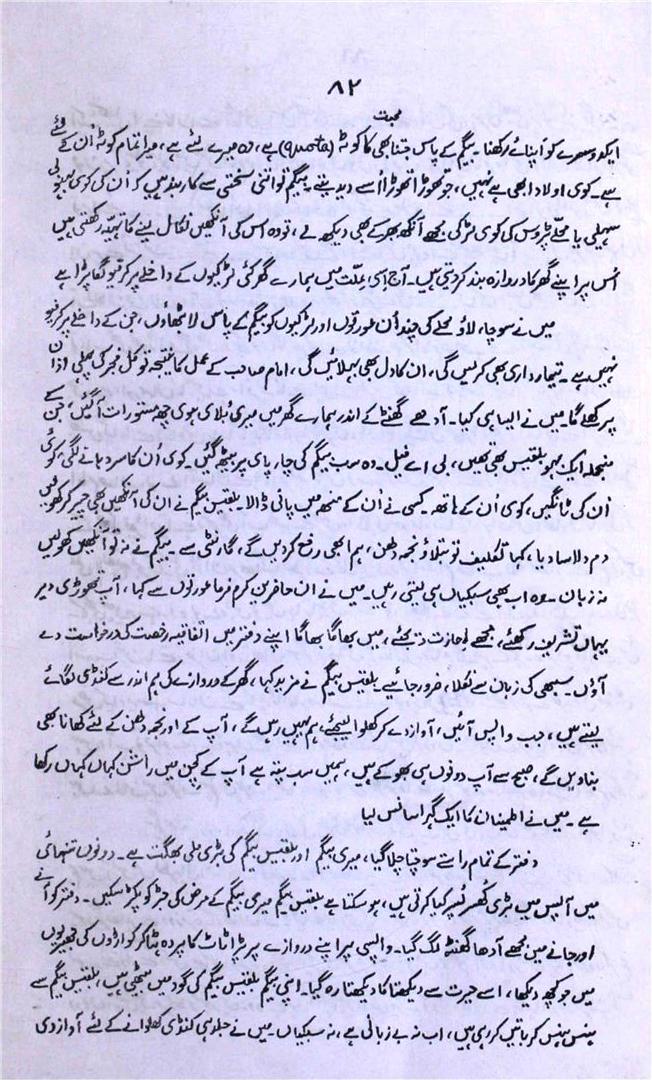 ۸۲
ایکدوسرے کو اپنائے رکھنا۔ بیگم کے پاس جتنا بھی محبت کا کوٹہ (Quota) ہے، وہ میرے لئے ہے، میرا تمام کوٹہ اُن کے لئے
ہے۔ کوئی اولاد ابھی ہے نہیں، جو تھوڑا تھوڑا اُسے دیدیتے۔ بیگم تو اتنی سختی سے کاربند ہیں کہ اُن کی کوئی سہیلی
سہیلی یا محلے پڑوس کی کوئی لڑکی مجھے آنکھ بھر کے بھی دیکھ لے، تو وہ اس کی آنکھیں نکال لینے کا تہیّہ رکھتی ہیں
اُس پر اپنے گھر کا دروازہ بند کر دیتی ہیں۔ آج اسی علّت میں ہمارے گھر کئی لڑکیوں کے داخلے پر کرفیو لگا پڑا ہے
میں نے سوچا، لاؤ محلے کی چند اُن عورتوں اور لڑکیوں کو بیگم کے پاس لا بٹھاوں، جن کے داخلے پر کرفیو
نہیں ہے۔ تیمارداری بھی کر لیں گی، ان کا دل بھی بہلائیں گی، امام صاحب کے عمل کا نتیجہ تو کل فجر کی پہلی اذان
پر کھلے گا۔ میں نے ایسا ہی کیا۔ آدھے گھنٹے کے اندر ہمارے گھر میں میری بُلائی ہوئی چھ مستورات آ گئیں، جن کے
منجملہ ایک بہو بلقیس بھی تھیں، بی اے فیل۔ وہ سب بیگم کی چارپائی پر بیٹھ گئیں۔ کوئی اُن کا سر دبانے لگی، کوئی
اُن کی ٹانگیں، کوئی اُن کے ہاتھ۔ کسی نے اُن کے منھ میں پانی ڈالا۔ بلقیس بیگم نے ان کی آنکھیں بھی چیر کر کھولیں
دم دلاسا دیا، کہا تکلیف تو بتلاؤ نجمہ دلھن، ہم ابھی رفع کر دیں گے، گارنٹی سے۔ بیگم نے نہ تو آنکھیں کھولیں
نہ زبان۔ وہ اب بھی سبکیاں ہی لیتی رہیں۔ میں نے ان حاضرین کرم فرما عورتوں سے کہا، آپ تھوڑی دیر
یہاں تشریف رکھئے، مجھے اجازت دیجئے، میں بھاگا بھاگا اپنے دفتر میں اتفاقیہ رخصت کی درخواست دے
آؤں۔ سبھی کی زبان سے نکلا، ضرور جائیے۔ بلقیس بیگم نے مزید کہا، گھر کے دروازے کی ہم اندر سے کنڈی لگائے
لیتے ہیں، جب واپس آئیں، آواز دے کر کھلوا لیجئے، ہم یہیں رہیں گے، آپ کے اور نجمہ دلھن کے لئے کھانا بھی
بنا دیں گے، صبح سے آپ دونوں ہی بھوکے ہیں، ہمیں سب پتہ ہے آپ کے کچن میں راشن کہاں کہاں رکھا
ہے۔ میں نے اطمنان کا ایک گہرا سانس لیا
دفتر کے تمام راستے سوچتا چلا گیا، میری بیگم اور بلقیس بیگم کی بڑی ملی بھگت ہے۔ دونوں تنہائی
میں آپس میں بڑی کُھسر پُسر کیا کرتی ہیں، ہو سکتا ہے بلقیس بیگم میری بیگم کے مرض کی جڑ کو پکڑ سکیں۔ دفتر کو آنے
اور جانے میں مجھے آدھا گھنٹہ لگ گیا۔ واپسی پر اپنے دروازے پر پڑا ٹاٹ کا پردہ ہٹا کر کواڑوں کی جھیریوں
میں جو کچھ دیکھا، اسے حیرت سے دیکھتا کا دیکھتا رہ گیا۔ اپنی بیگم بلقیس بیگم کی گود میں بیٹھی ہیں، بلقیس بیگم سے
ہنس ہنس کر باتیں کر رہی ہیں، اب نہ بے زبانی ہے، نہ سبکیاں۔ میں نے جلد ہی کنڈی کھلوانے کے لئے آواز دی